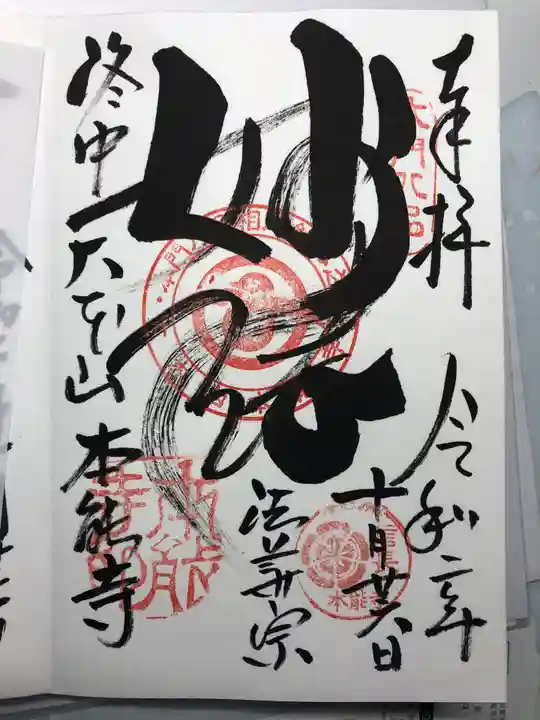 奉拝
令和二年
十月廿六日
妙法
法華宗
洛中大本山
本能寺
本能寺